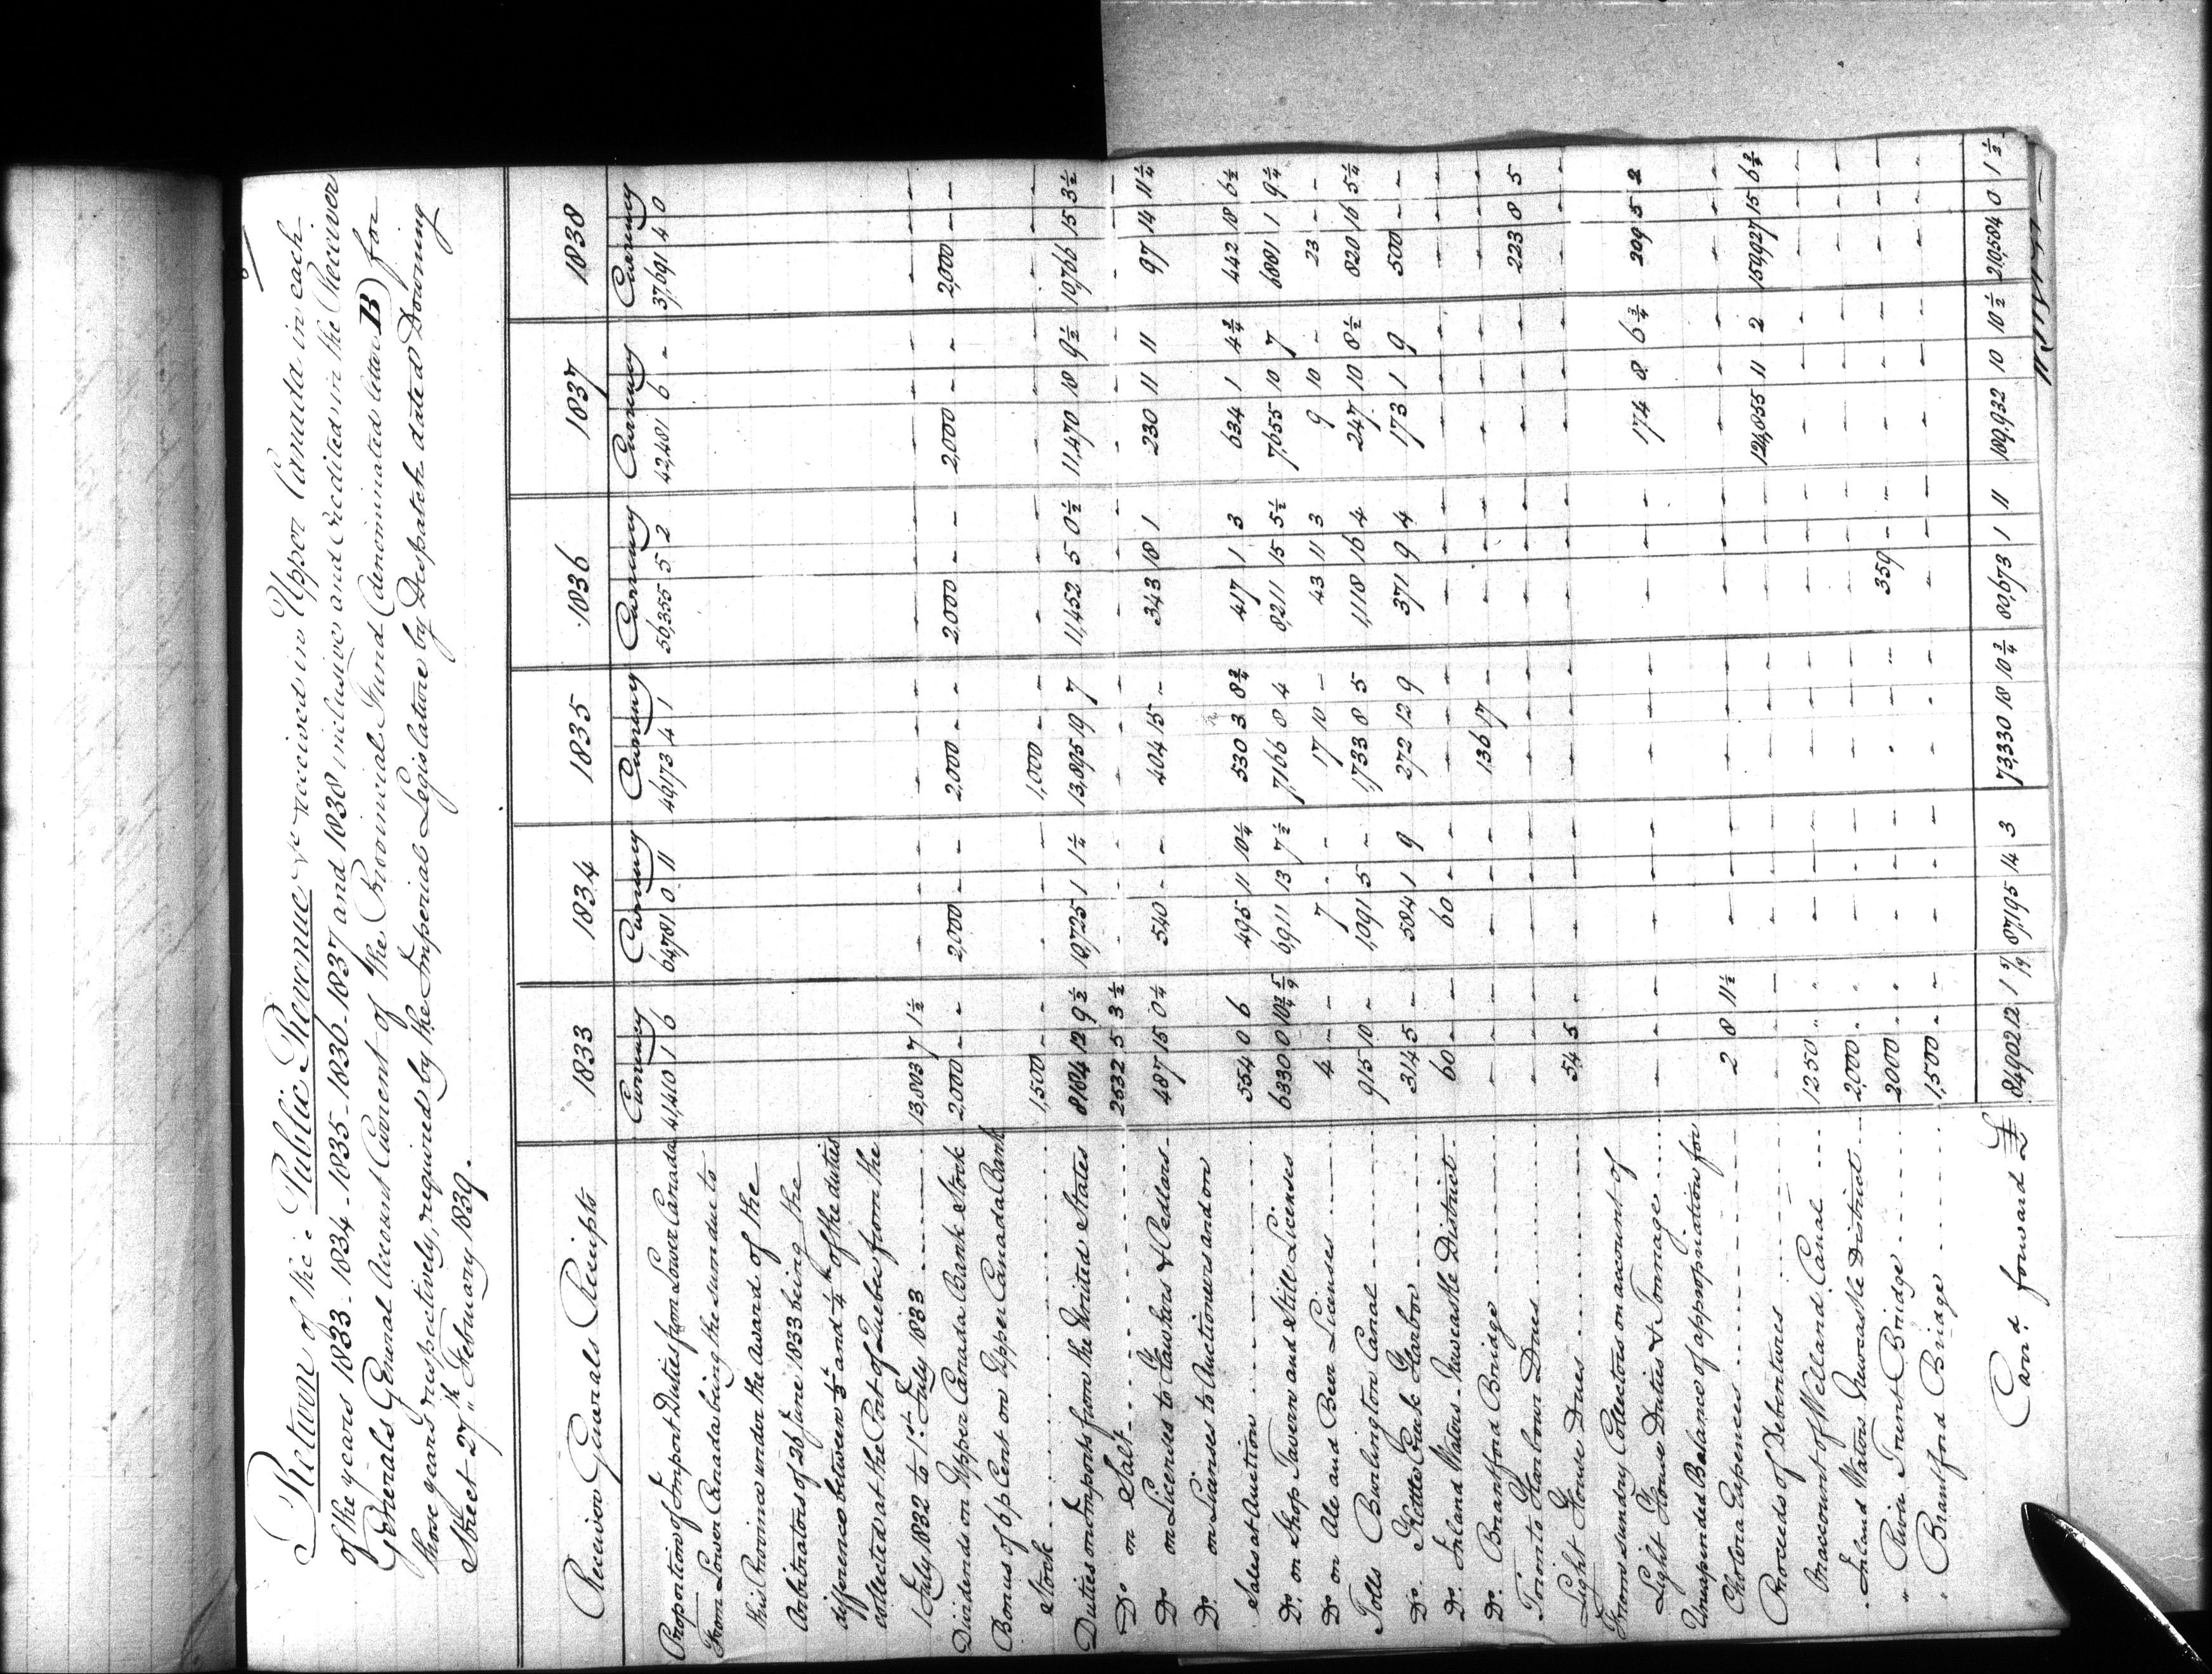 Return of the Public Revenue &c received in Upper Canada in each
of the years 1833 - 1834 - 1835 - 1836 - 1837 and 1838 inclusive and Credited in the Receiver
Generals General Account Current of the Provincial Fund (denominated letter B) for
those years respectively, required by the Imperial Legislature by Despatch dated Downing
Street 27th February 1839.
Receiver Generals Receipts 1833 1834 1835 1836 1837 1838
Currency Currency Currency Currency Currency Currency
Proportion of Import Duties from Lower Canada 41,440 1 6 64,781 0 11 49,173 4 1 56,355 5 2 42,481 6 - 37,691 4 0
From Lower Canada being the sum due to
this Province under the Award of the
Arbitrators of 26 June 1833 being the
difference between 1/5 and 1/4th of the duties
collected at the Port of Quebec from the
1 July 1832 to 1st July 1833 13,803 7 1½ - - - - -
Dividends on Upper Canada Bank Stock 2,000 - - 2,000 - - 2,000 - - 2,000 - - 2,000 - - 2,000 - -
Bonus of 6 p Cent on Upper Canada Bank
Stock 1,500 - - - 1,000 - - - - -
Duties on Imports from the United States 8164 12 9½ 10,725 1 1¼ 13,895 19 7 11,452 5 0½ 11,470 18 9½ 10,766 15 3½
Do on Salt 2532 5 3½ - - - - -
Do on Licenses to Hawkers & Pedlars 487 15 0¼ 540 - - 404 15 - 343 18 1 230 11 11 97 14 11¼
Do on Licenses to Auctioneers and on
Sales at Auction 554 0 6 495 11 10¼ 530 3 8¾ 417 1 3 634 1 4¾ 442 18 6½
Do on Shop Tavern and Still Licenses 6330 0 10¾ 5/9 6,911 13 7½ 7,166 8 4 8,211 15 5½ 7,655 10 7 6881 1 9¼
Do on Ale and Beer Licenses 4 - - 7 - - 17 10 - 43 11 3 9 10 - 23 - -
Tolls Burlington Canal 915 10 - 1,091 5 - 1,733 8 5 1,118 16 4 247 10 8½ 820 16 5¼
Do Kettle Creek Harbor 314 5 - 584 1 9 272 12 9 371 9 4 173 1 9 500 - -
Do Inland Waters Newcastle District 60 - - 60 - - - - - -
Do Brantford Bridge - - 136 17 - - - -
Toronto Harbour Dues - - - - - 223 8 5
Light House Dues 54 5 - - - - - -
From sundry Collectors on account of
Light House Duties & Tonnage - - - - 174 8 6¾ 209 5 2
Unexpended Balance of appropriation for
Cholera Expences 2 8 11½ - - - - -
Proceeds of Debentures - - - - 124,855 11 2 150,927 15 6¾
On account of Welland Canal 1250 " " - - - - -
Inland Waters Newcastle District 2,000 - - - - - - -
" River Trent Bridge 2000 - - - - 359 - - - -
" Brantford Bridge 1,500 - - - - - - -
Carrd forward £ 84,902 12 1 5/19 87,195 14 3 73,330 18 10¾ 80,673 1 11 189,932 10 10½ 210,584 0 1½